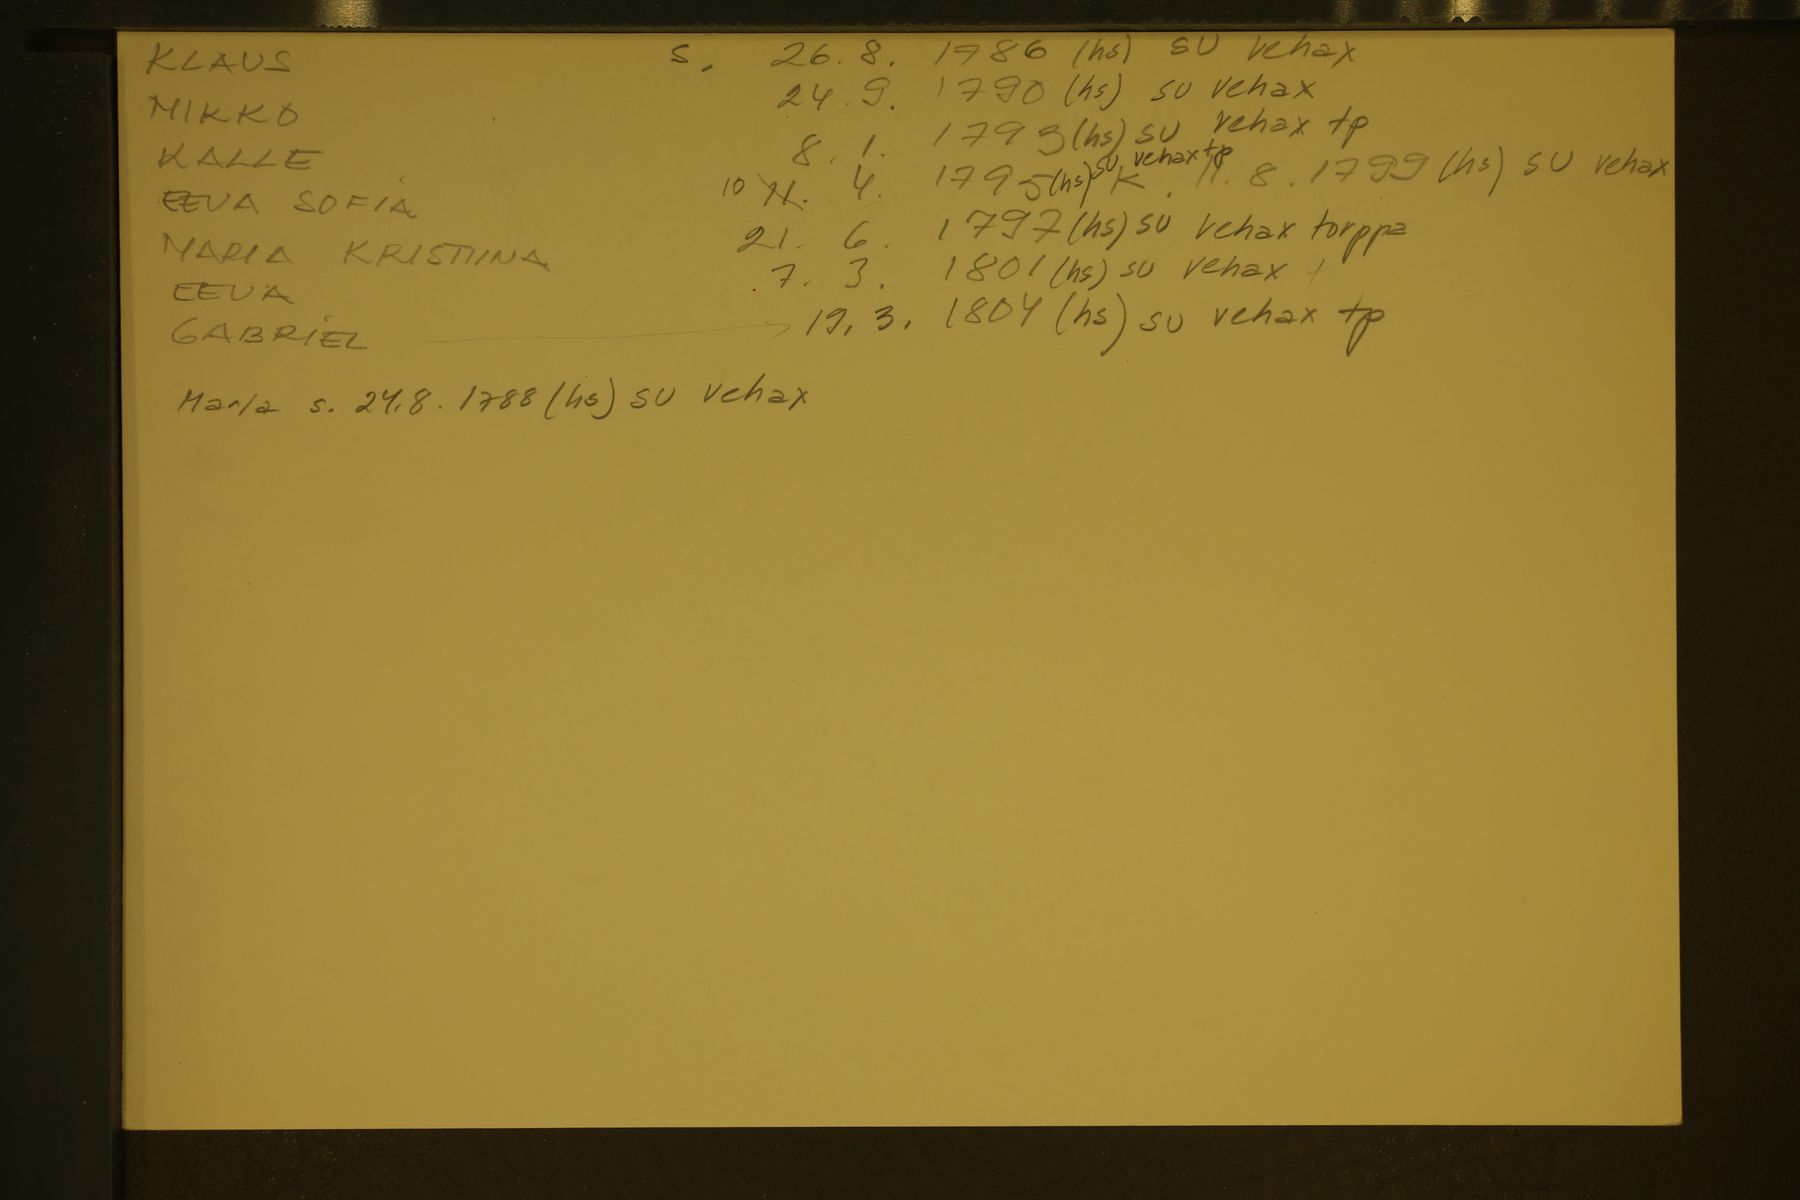 KLAUS s. 26.8. 1786 (hs) su vehax
MIKKO 24.9. 1790 (hs) su vehax
KALLE 8.1. 1793 (hs) su vehax tp
EEVA SOFIA 10 11. 4. 1795 (hs) su vehax tp K. 11.8.1799 (hs) su vehax
MARIA KRISTIINA 21. 6. 1797 (hs) su vehax torppa
EEVA 7. 3. 1801 (hs) su vehax
GABRIEL 19.3. 1804 (hs) su vehax tp
Maria s. 24.8. 1788 (hs) su vehax